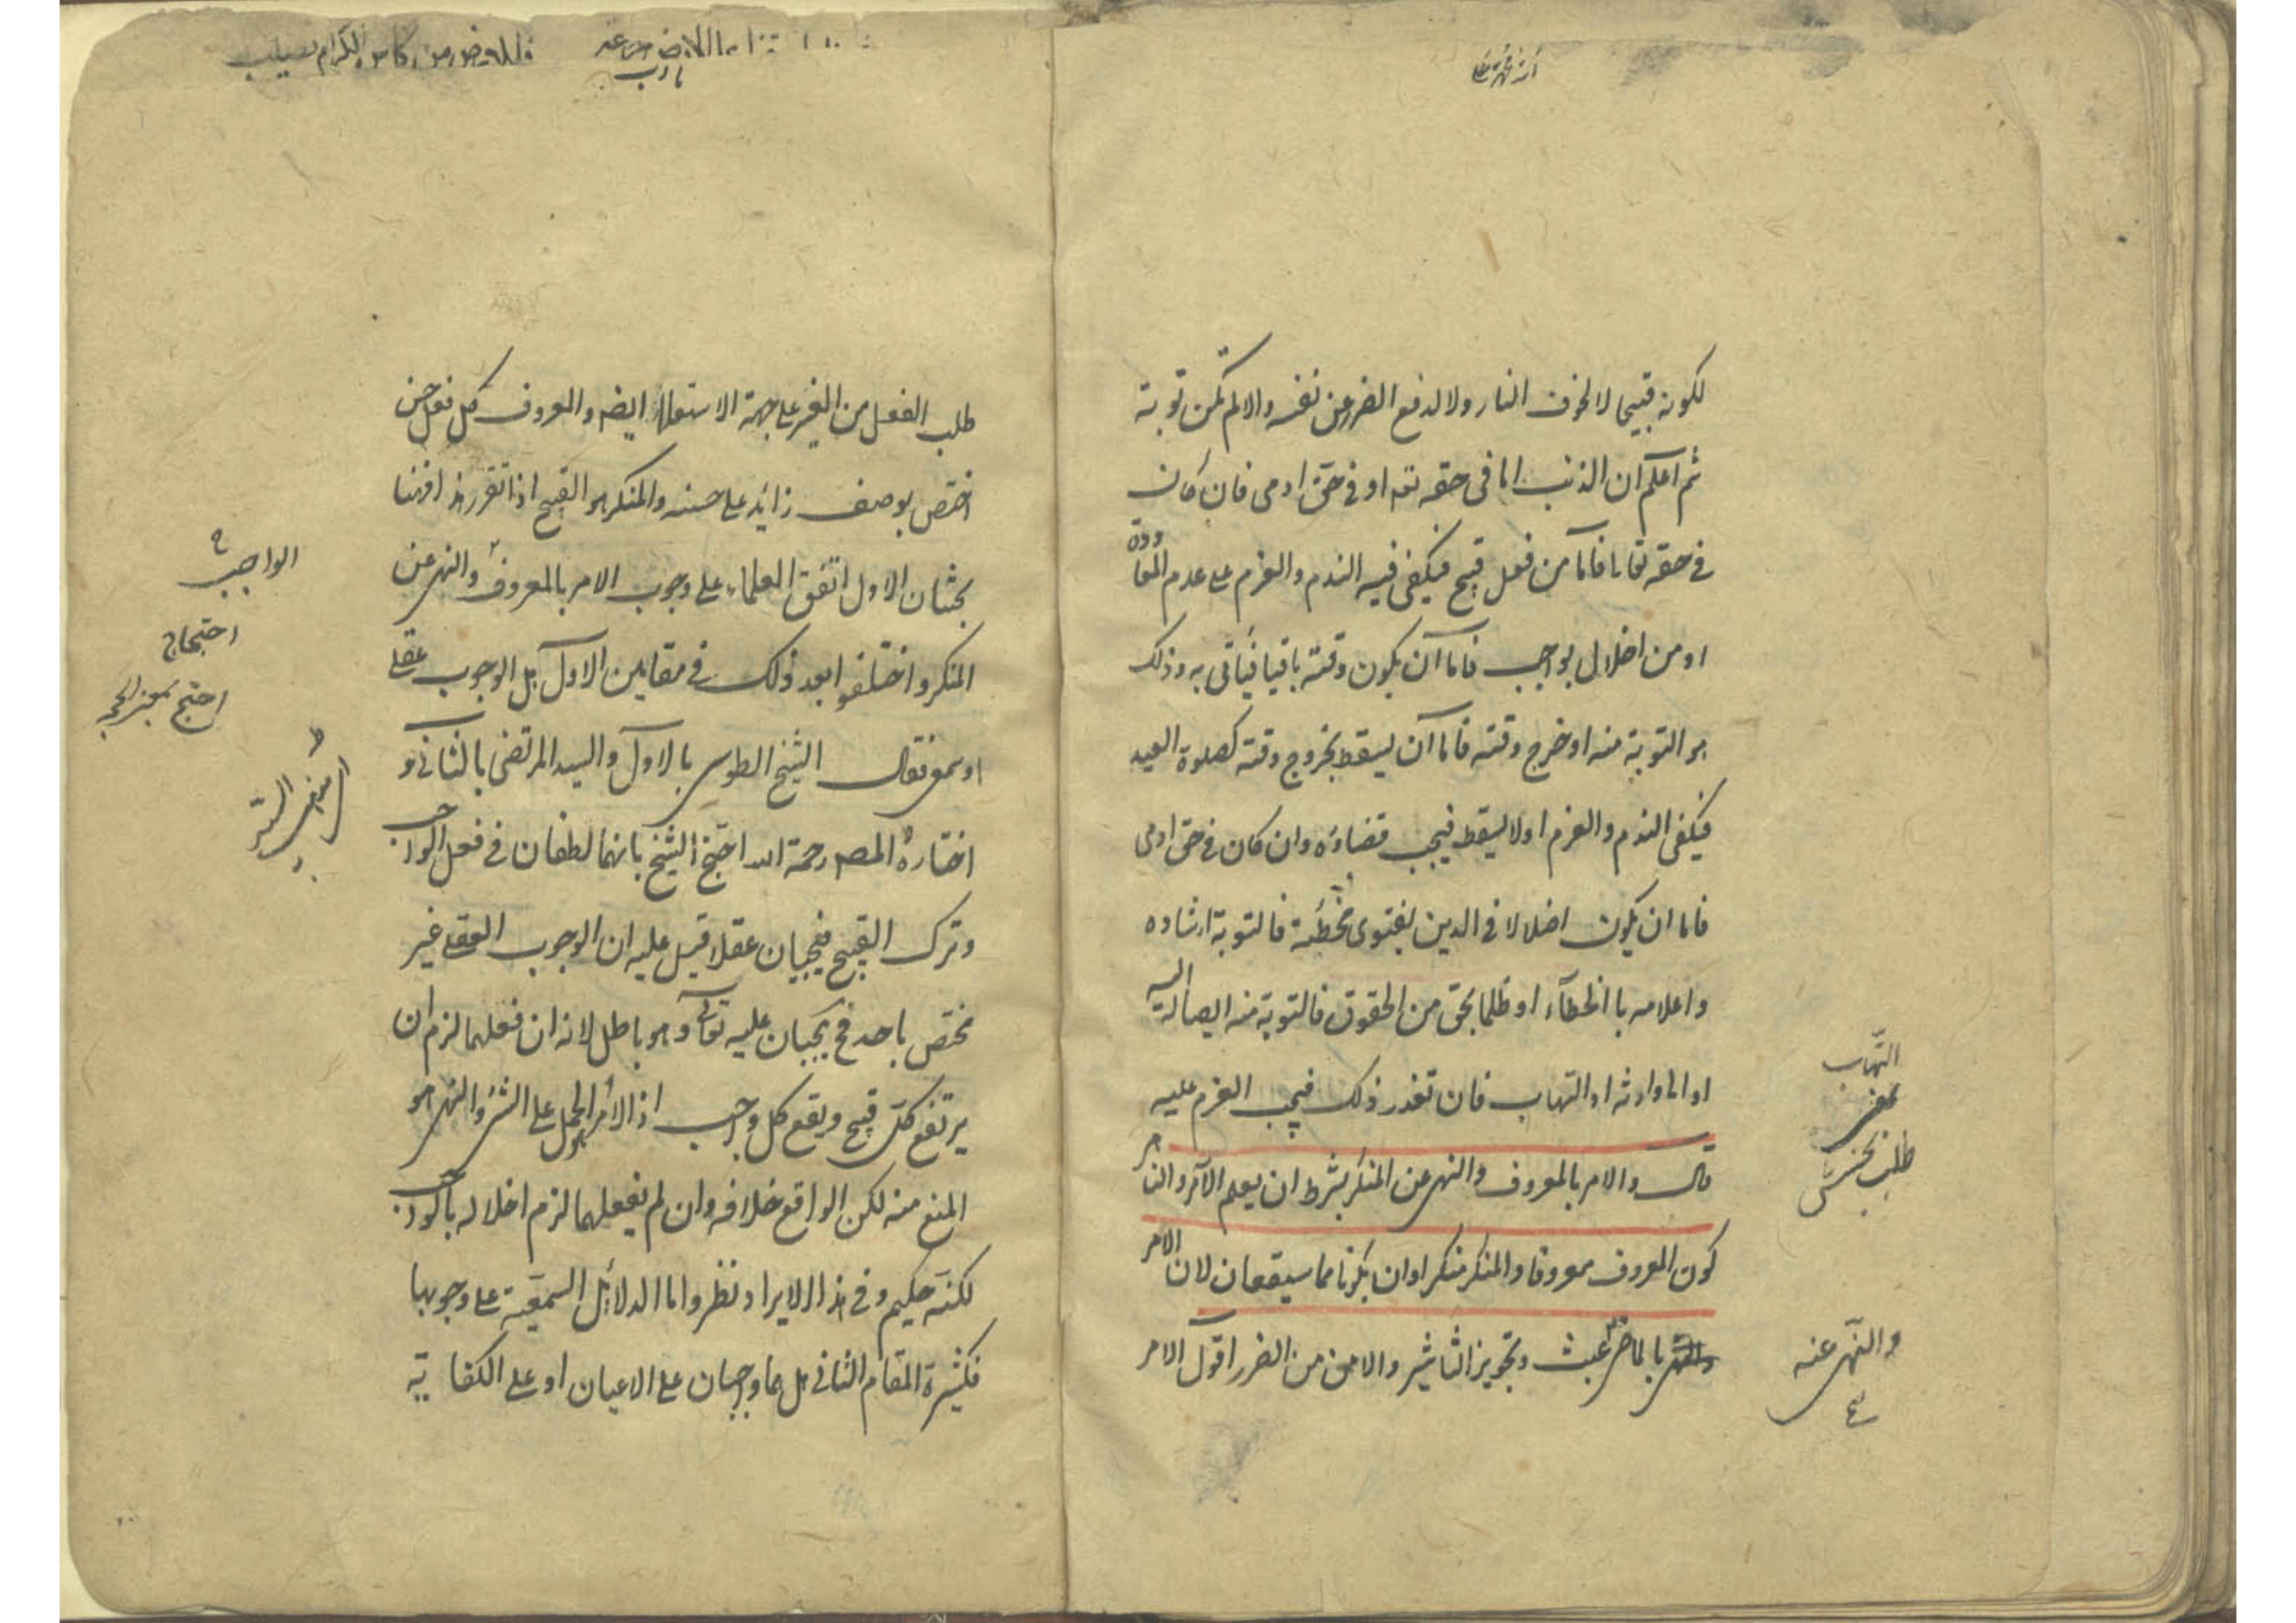 لكونه قبيحا لا لخوف النار ولا لدفع الضرر عن نفسه والا لم تكن توبة
ثم اعلم ان الذنب اما فى حقه تعه او فى حق ادمى فان كان
فى حقه تعا فاما من فعل قبيح فيكفى فيه الندم والعزم على عدم المعاودة
او من اخلال بواجب فاما ان يكون وقته باقيا فيأتى به وذلك
هو التوبة منه او خرج وقته فاما ان يسقط بخروج وقته كصلوة العيد
فيكفى الندم والعزم او لا يسقط فيجب قضاؤه وان كان فى حق ادمى
فاما ان يكون اضلالا فى الدين بفتوى مخطئة فالتوبة ارشاده
واعلامه بالخطآء او ظلما بحق من الحقوق فالتوبة منه ايصاله اليه
او الى وارثه او التهاب فان تعذر ذلك فيجب العزم عليه
قال والامر بالمعروف والنهى عن المنكر بشرط ان يعلم الآمر والناهى
كون المعروف معروفا والمنكر منكرا وان يكونا مما سيقعان لان الامر
بالماضى عبث وتجويز التاثير والامن من الضرر اقول الامر
التهاب
بمعنى
طلب بخشش
والنهى عنه
طلب الفعل من الغير على جهة الاستعلاء ايضه والمعروف كل فعل حسن
اختص بوصف زايد على حسنه والمنكر هو القبيح اذا تقرر هذا فهنا
بحثان الاول اتفق العلماء على وجوب الامر بالمعروف والنهى عن
المنكر واختلفوا بعد ذلك فى مقامين الاول هل الوجوب عقلى
او سمعى فقال الشيخ الطوسى بالاول والسيد المرتضى بالثانى و
اختاره المصه رحمة الله احتج الشيخ بانهما لطفان فى فعل الواجب
وترك القبيح فيجبان عقلا قيل عليه ان الوجوب العقلى غير
مختص باحد فح يجبان عليه تعالى وهو باطل لانه ان فعلهما لزم ان
يرتفع كل قبيح ويقع كل واجب اذ الامر هو الحمل على الشئ والنهى هو
المنع منه لكن الواقع خلافه وان لم يفعلهما لزم اخلاله بالواجب
لكنه حكيم وفى هذا الايراد نظر واما الدلائل السمعية على وجوبها
فكثيرة المقام الثانى هل هما واجبان على الاعيان او على الكفاية
الواجب
احتجاج
احتج بمعنى الحجه